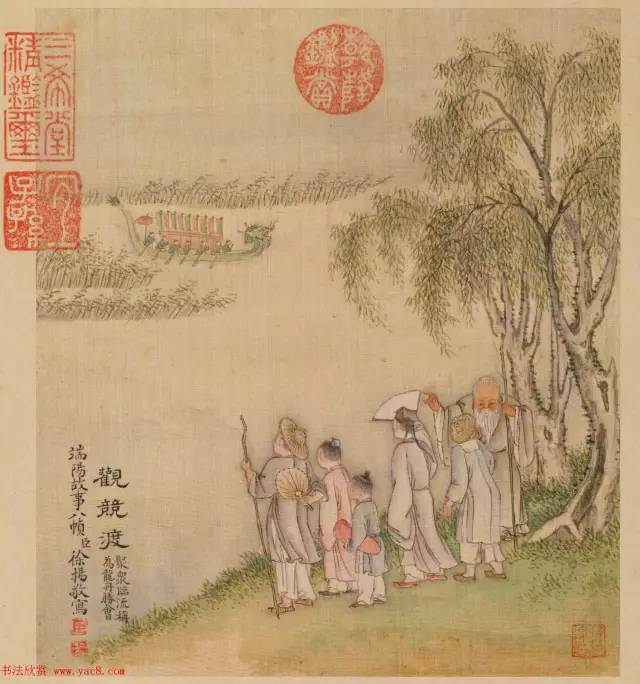 三希堂
精鑑璽
宜
子孫
乾隆
鑑賞
觀競渡
聚衆臨流稱
為龍舟勝會
端陽故事八幀臣徐揚敬寫
书法欣赏 www.yac8.com